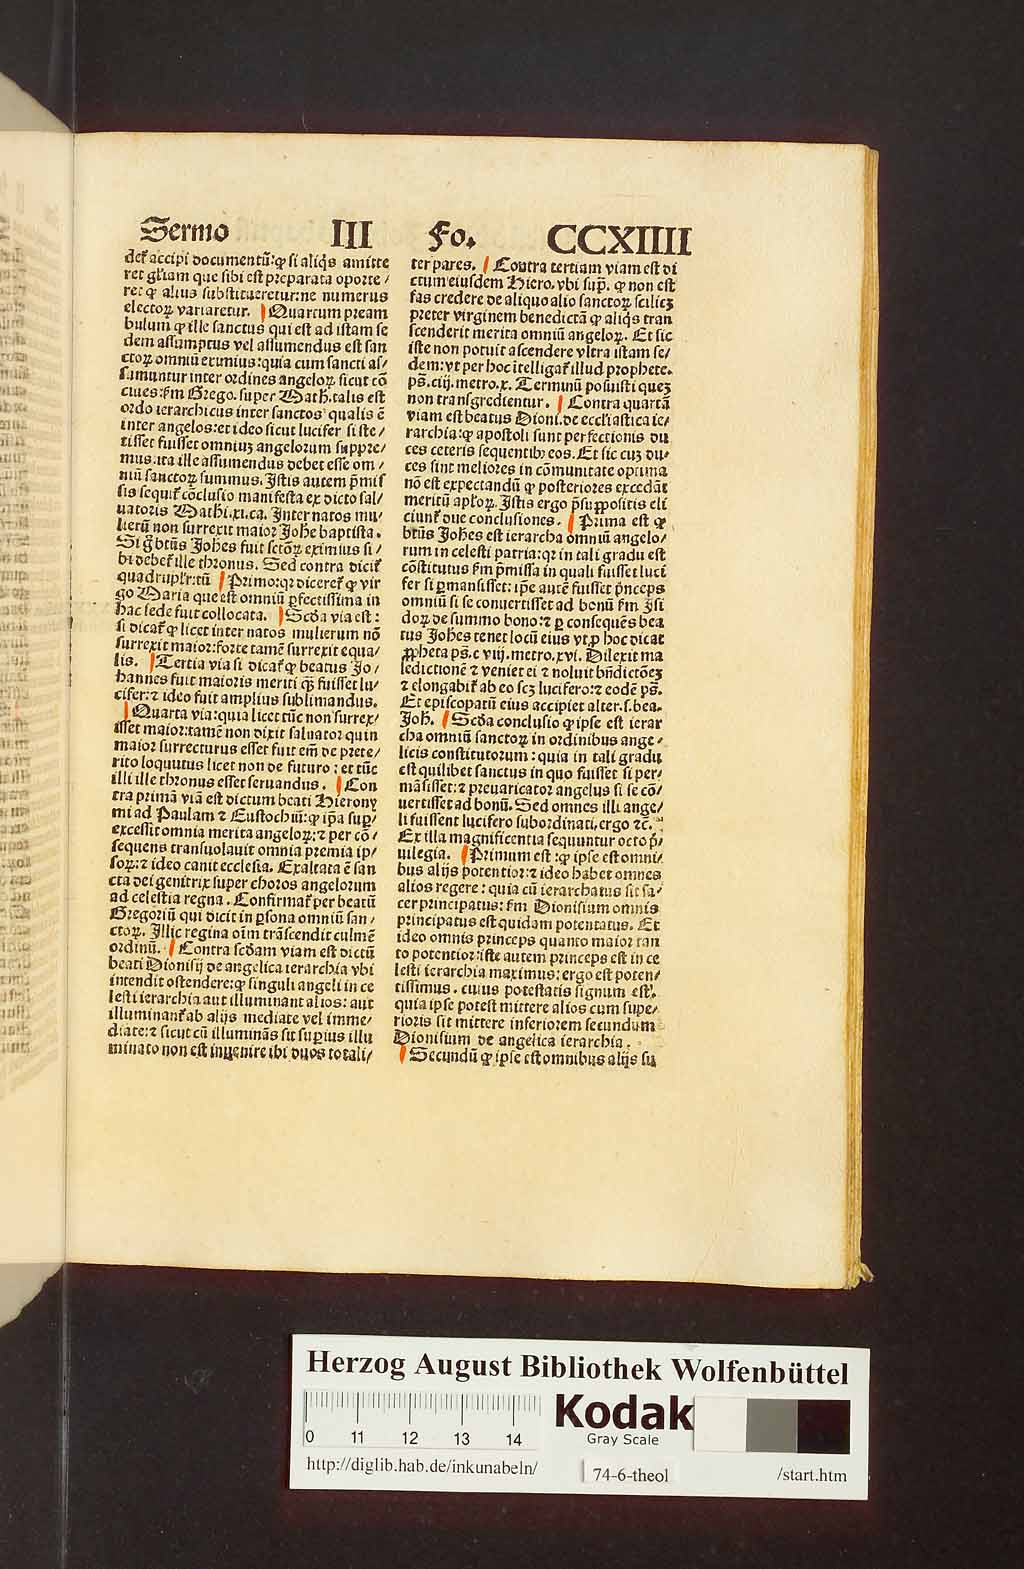 Sermo III Fo. CCXIIII
det᷑ accipi documentū: ꝙ si aliq̄s amitte
ret gl̄iam que sibi est preparata oporte/
ret ꝙ alius substitueretur: ne numerus
electoꝝ variaretur. Quartum pream
bulum ꝙ ille sanctus qui est ad istam se
dem assumptus vel assumendus est san
ctoꝝ omniū eximius: quia cum sancti as/
sumuntur inter ordines angeloꝝ sicut cō
ciues: s̄m Grego. super Math. talis est
ordo ierarchicus inter sanctos qualis ē
inter angelos: et ideo sicut lucifer si ste/
tisset fuisset omniuꝫ angelorum suppre/
mus. ita ille assumendus debet esse om/
niū sanctoꝝ summus. Istis autem p̄mis
sis sequit᷑ cōclusio manifesta ex dicto sal/
uatoris Mathi. xi. ca. Inter natos mu/
lierū non surrexit maior Joh̄e baptista.
Si g̊ btūs Joh̄es fuit sctōꝝ eximius si/
bi debet᷑ ille thronus. Sed contra dicit᷑
quadrupl̄r: tū Primo: qꝛ diceret᷑ ꝙ vir
go Maria que est omniū ꝑfectissima in
hac sede fuit collocata. Scd̄a via est:
si dicat᷑ ꝙ licet inter natos mulierum nō
surrexit maior: forte tamē surrexit equa/
lis. Tertia via si dicat᷑ ꝙ beatus Jo/
hannes fuit maioris meriti q̄ꝫ fuisset lu/
cifer: ⁊ ideo fuit amplius sublimandus.
Quarta via: quia licet tūc non surrex/
isset maior: tamē non dixit saluator quin
maior surrecturus esset fuit em̄ de prete/
rito loquutus licet non de futuro: et tūc
illi ille thronus esset seruandus. Con
tra primā viā est dictum beati Hierony
mi ad Paulam ⁊ Eustochiū: ꝙ ip̄a sup̱/
excessit omnia merita angeloꝝ: ⁊ per cō/
sequens transuolauit omnia premia ip/
soꝝ: ⁊ ideo canit ecclesia. Exaltata ē san
cta dei genitrix super choros angelorum
ad celestia regna. Confirmat᷑ per beatū
Gregoriū qui dicit in ꝑsona omniū san/
ctoꝝ. Illic regina oīm trāscendit culmē
ordinū. Contra scd̄am viam est dictū
beati Dionisij de angelica ierarchia vbi
intendit ostendere: ꝙ singuli angeli in ce
lesti ierarchia aut illuminant alios: aut
illuminant᷑ ab alijs mediate vel imme/
diate: ⁊ sicut cū illuminās sit suꝑius illu
minato non est inuenire ibi duos totali/
ter pares. Contra tertiam viam est di
ctum eiusdem Hiero. vbi sup̄. ꝙ non est
fas credere de aliquo alio sanctoꝝ scilicꝫ
preter virginem benedictā ꝙ aliq̄s tran
scenderit merita omniū angeloꝝ. Et sic
iste non potuit ascendere vltra istam se/
dem: vt per hoc ītelligat᷑ illud prophete.
ps̄. ciij. metro. x. Terminū posuisti queꝫ
non transgredientur. Contra quartā
viam est beatus Dioni. de eccl̄iastica ie/
rarchia: ꝙ apostoli sunt perfectionis du
ces ceteris sequentibꝰ eos. Et sic cuꝫ du/
ces sint meliores in cōmunitate optima
nō est expectandū ꝙ posteriores excedāt
meritū apl̄oꝝ. Istis ergo p̄suppositis eli
ciunt᷑ due conclusiones. Prima est ꝙ
btūs Joh̄es est ierarcha omniū angelo/
rum in celesti patria: qꝛ in tali gradu est
cōstitutus s̄m p̄missa in quali fuisset luci
fer si ꝑmansisset: ip̄e autē fuisset p̄nceps
omniū si se conuertisset ad bonū s̄m Isi
doꝝ de summo bono: ⁊ ꝑ consequēs bea
tus Joh̄es tenet locū eius vt ꝑ hoc dicat
ꝓpheta ps̄. c viij. metro. xvi. Dilexit ma
ledictionē ⁊ veniet ei ⁊ noluit bn̄dictōeꝫ
⁊ elongabit᷑ ab eo scꝫ lucifero: ⁊ eodē ps̄.
Et episcopatū eius accipiet alter. s. bea.
Joh̄. Scd̄a conclusio ꝙ ipse est ierar
cha omniū sanctoꝝ in ordinibus ange/
licis constitutorum: quia in tali gradu
est quilibet sanctus in quo fuisset si per/
māsisset: ⁊ preuaricator angelus si se cō/
uertisset ad bonū. Sed omnes illi ange/
li fuissent lucifero subordinati. ergo ⁊c.
Ex illa magnificentia sequuntur octo p̄/
uilegia. Primum est: ꝙ ipse est omni/
bus alijs potentior: ⁊ ideo habet omnes
alios regere: quia cū ierarchatus sit sa/
cer principatus: s̄m Dionisium omnis
principatus est quidam potentatus. Et
ideo omnis princeps quanto maior tan
to potentior: iste autem princeps est in ce
lesti ierarchia maximus: ergo est poten/
tissimus. cuius potestatis signum est.
quia ipse potest mittere alios cum supe/
rioris sit mittere inferiorem secundum
Dionisium de angelica ierarchia.
Secundū ꝙ ipse est omnibus alijs su
Herzog August Bibliothek Wolfenbüttel
0 11 12 13 14
Kodak
Gray Scale
http://diglib.hab.de/inkunabeln/ 74-6-theol /start.htm